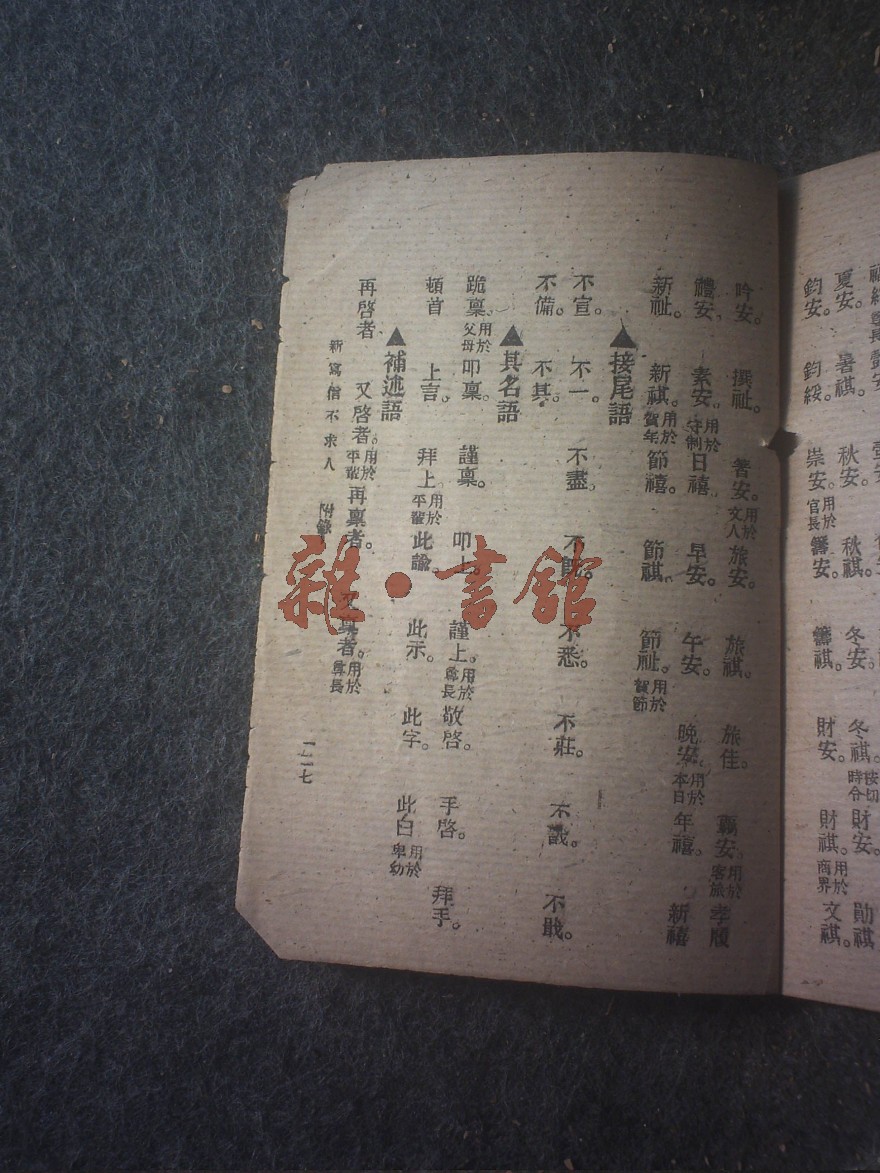 夏安。 暑祺。 秋安。 秋祺。 冬安。 冬祺。 按切時令 財安。 勛祺
鈞安。 鈞綏。 崇安。 用於官長 籌安。 籌祺。 財安。 財祺。 用於商界 文祺。
吟安。 撰祉。 著安。 用於文人 旅安。 旅祺。 旅佳。 羈安。 用於客旅 孝履
禮安。 素安。 用於守制 日禧。 早安。 午安。 晚安。 用於本日 年禧。 新禧
新祉。 新祺。 用於賀年 節禧。 節祺。 節祉。 用於賀節
▲接尾語
不宣。 不一。 不盡。 不悉。 不莊。 不戩。
不備。 不具。
▲具名語
跪稟。 用於父母 叩稟。 謹稟。 叩上。 謹上。 用於尊長 敬啓。 手啓。 拜手。
頓首 上言。 拜上。 用於平輩 此諭。 此示。 此字。 此白 用於卑幼
▲補述語
再啓者 又啓者。 用於平輩 再稟者。 又稟者。 用於尊長
新寫信不求人 附錄
一一七
雜·書館